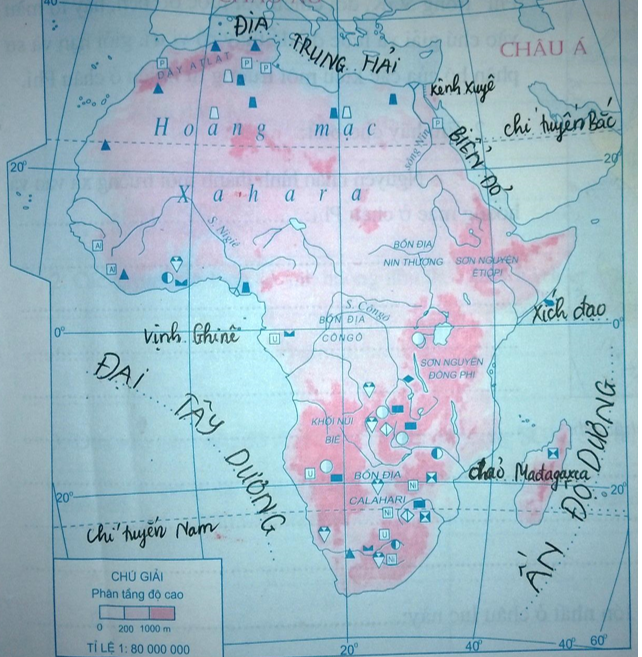 ĐỊA
TRUNG HẢI
CHÂU Á
DÃY ATLAT
P
P
P
P
Kênh Xuyê
Hoang mạc
chí tuyến Bắc
BIỂN ĐỎ
Sông Nin
20°
20°
Xahara
S. Nigiê
Al
Al
BỒN ĐỊA
NIN THƯỢNG
SƠN NGUYÊN
ÊTIÔPI
Xích đạo
S. Côngô
BỒN ĐỊA
CÔNGÔ
Vịnh Ghinê
0°
0°
U
SƠN NGUYÊN
ĐÔNG PHI
ĐẠI TÂY DƯƠNG
KHỐI NÚI
BIÊ
U
BỒN ĐỊA
CALAHARI
Ni
Ni
U
Ni
đảo Mađagaxca
ẤN ĐỘ DƯƠNG
20°
20°
Chí tuyến Nam
CHÚ GIẢI
Phân tầng độ cao
0 200 1000 m
TỈ LỆ 1: 80 000 000
20°
40°
40° 60°